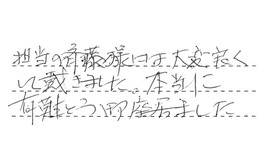 担当の斉藤様には大変良く
して戴きました。本当に
有難とう御座居ました